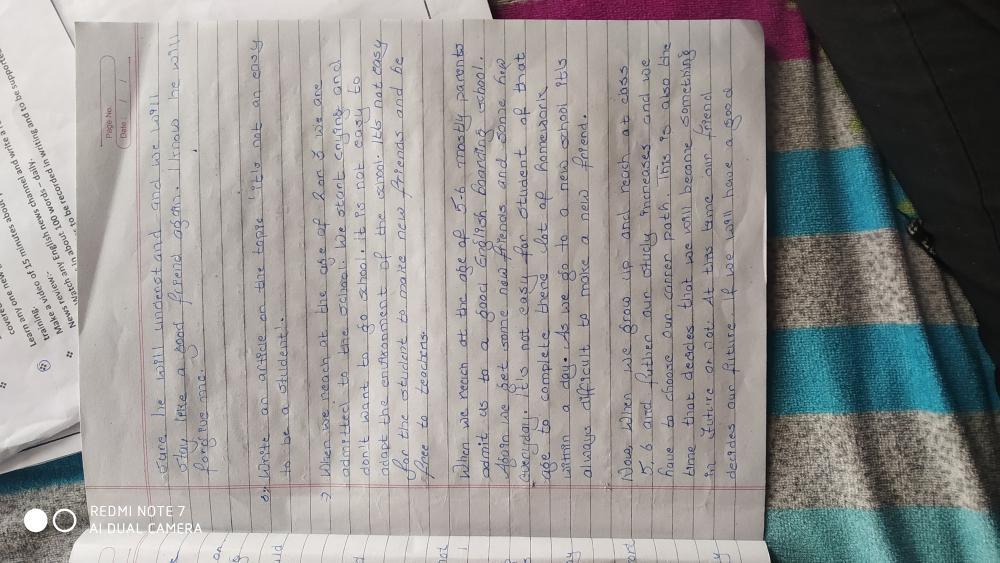 Page No.
Date / /
sure he will understand and we will
stay like a good friend again. I know he will
forgive me.
Write an article on the topic 'it's not an easy
to be a student'.
→ When we reach at the age of 2 or 3 we are
admitted to the school. We start crying and
don't want to go school. it is not easy to
adapt the enviroment of the school. It's not easy
for the student to make new friends and be
free to teachers.
When we reach at the age of 5-6 mostly parents
admit us to a good English boarding school.
Again we get some new friends and some new
everyday. It's not easy for student of that
age to complete there lot of homework
within a day. As we go to a new school it is
always difficult to make a new friend.
Now when we grow up and reach at class
5, 6 and futher our study increases and we
have to choose our correr path. This is also the
time that decides that we will become something
in future or not. At this time our friend
decides our future. If we will have a good
learn any one new
training.
Make a video of 15 minutes about
News review:-
Watch any English news channel and write a
in about 100 words – daily.
to be recorded in writing and to be supported
REDMI NOTE 7
AI DUAL CAMERA